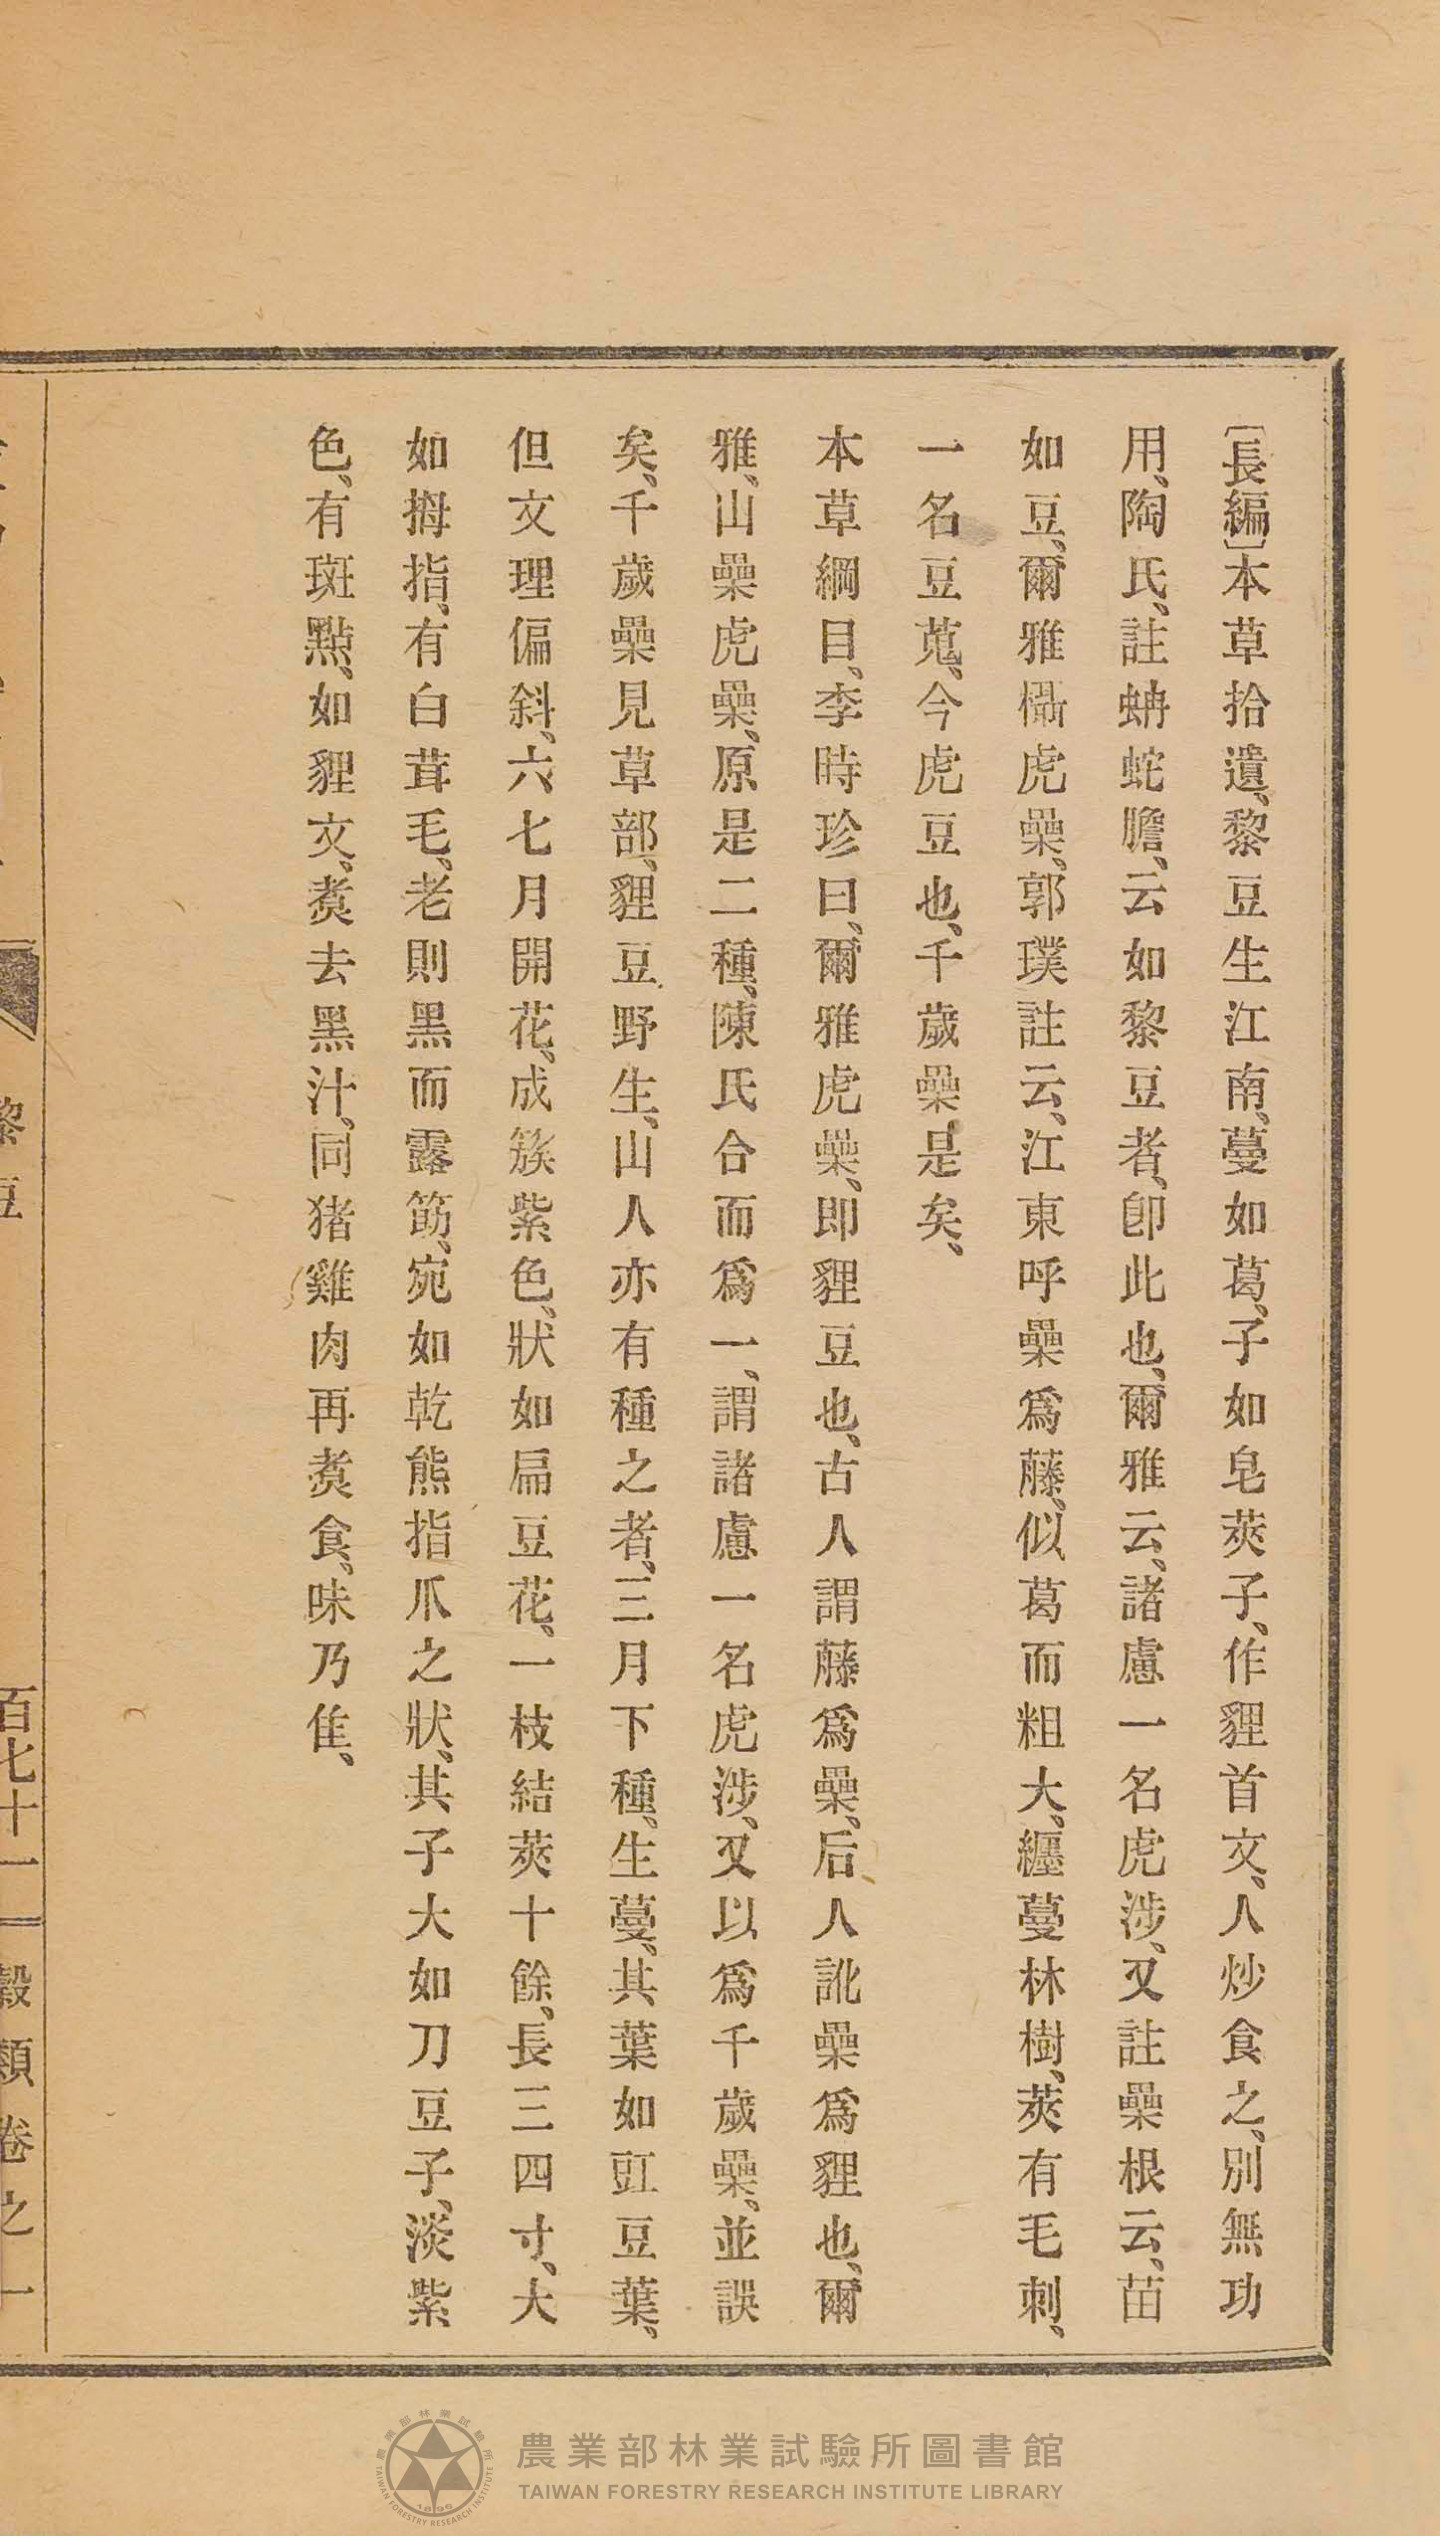 〔長編〕本草拾遺、黎豆生江南、蔓如葛、子如皂莢子、作貍首文、人炒食之、別無功
用、陶氏、註蚺蛇膽、云如黎豆者、卽此也、爾雅云、諸慮一名虎涉、又註櫐根云、苗
如豆、爾雅欇虎櫐、郭璞註云、江東呼櫐爲藤、似葛而粗大、纒蔓林樹、莢有毛刺、
一名豆蒐、今虎豆也、千歲櫐是矣、
本草綱目、李時珍曰、爾雅虎櫐、即貍豆也、古人謂藤爲櫐、后人訛櫐爲貍也、爾
雅、山櫐虎櫐、原是二種、陳氏合而爲一、謂諸慮一名虎涉、又以爲千歲櫐、並誤
矣、千歲櫐見草部、貍豆野生、山人亦有種之者、三月下種、生蔓、其葉如豇豆葉、
但文理偏斜、六七月開花、成簇紫色、狀如扁豆花、一枝結莢十餘、長三四寸、大
如拇指、有白茸毛、老則黑而露筋、宛如乾熊指爪之狀、其子大如刀豆子、淡紫
色、有斑點、如貍文、煑去黑汁、同猪雞肉再煑食、味乃佳、
黎豆
百七十一
穀類卷之一
農業部林業試驗所圖書館
TAIWAN FORESTRY RESEARCH INSTITUTE LIBRARY
農業部林業試驗所
TAIWAN FORESTRY RESEARCH INSTITUTE
1895